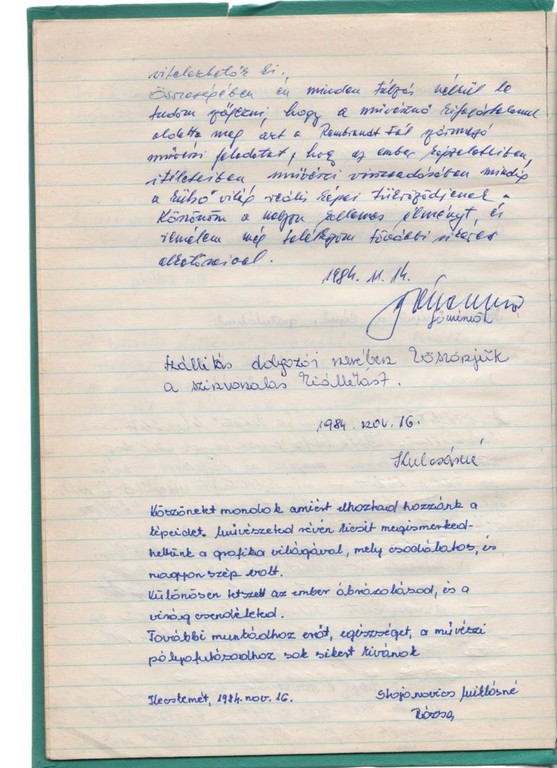 Összeségében én minden túlzás nélkül le
tudom szögezni, hogy a művésznő kifogástalanul
oldotta meg azt a Rembrandt-tól származó
művészi feladatot, hogy az ember képzeleteiben,
ítéleteiben művészi visszaadásában mindig
a külső világ reális képei tükröződjenek.
Köszönöm a nagyon kellemes élményt, és
remélem még találkozom további sikeres
alkotásaival.
1984. 11. 14.
főmérnök
Szállítás dolgozói nevében köszönjük
a színvonalas kiállítást.
1984. nov. 16.
Kulcsárné
Köszönetet mondok amiért elhoztad hozzánk a
képeidet. Művészeted révén kicsit megismerked-
hettünk a grafika világával, mely csodálatos, és
nagyon szép volt.
Különösen tetszett az ember ábrázolásod, és a
virág csendéleted.
További munkádhoz erőt, egészséget, a művészi
pályafutásodhoz sok sikert kívánok
Kecskemét, 1984. nov. 16.
Stojanovics Miklósné
Rózsa